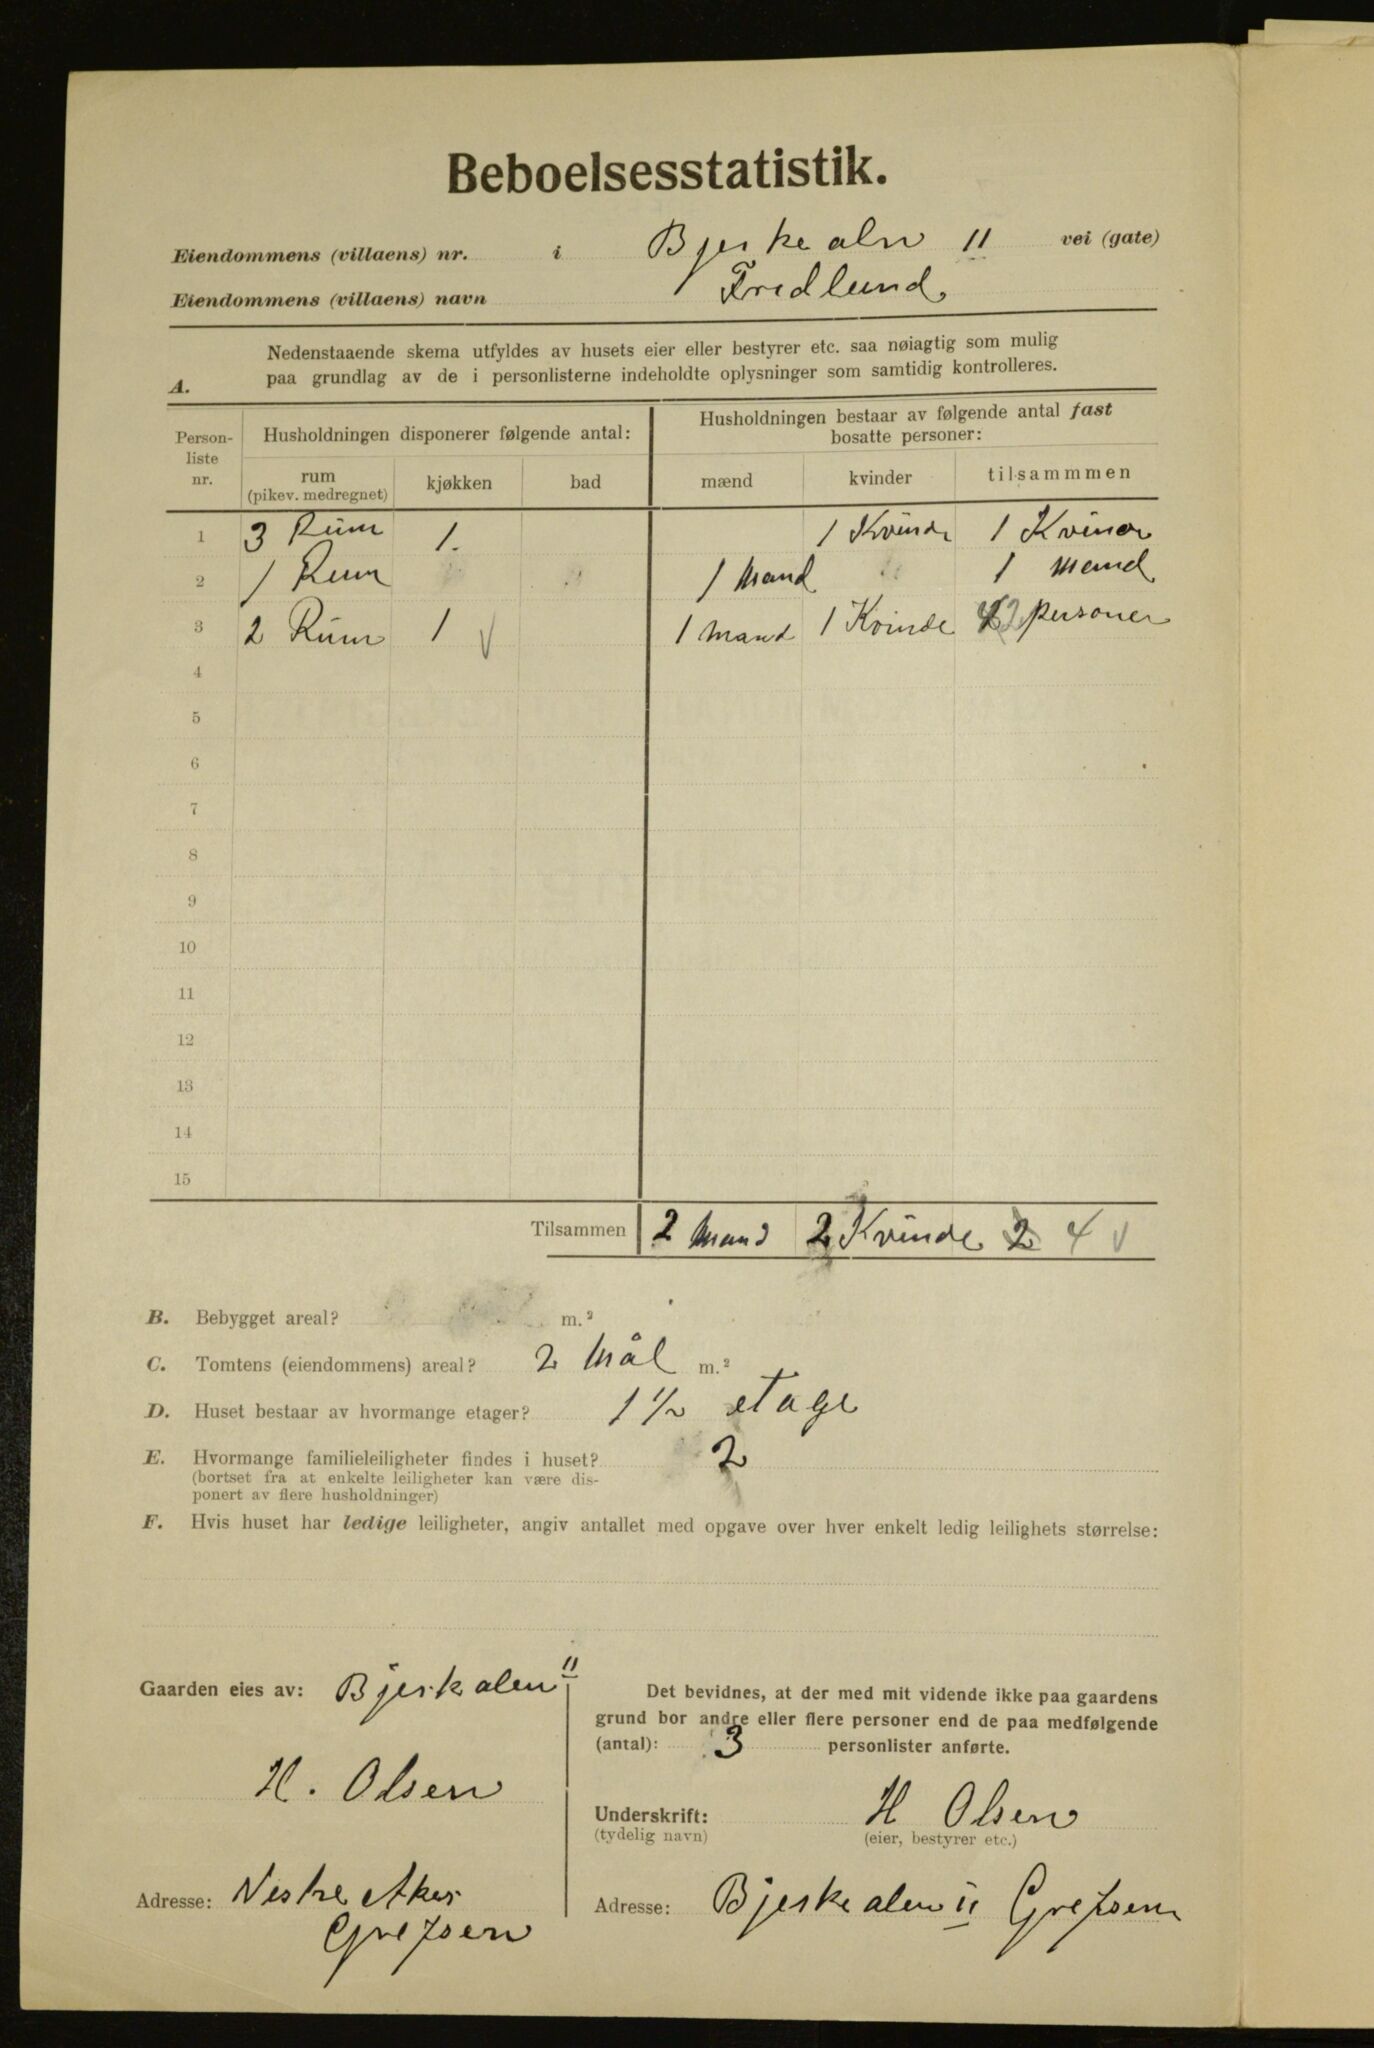 Beboelsesstatistik.
Eiendommens (villaens) nr. i Bjerkealn 11 vei (gate)
Eiendommens (villaens) navn Fredlund,
Nedenstaaende skema utfyldes av husets eier eller bestyrer etc. saa nøiagtig som mulig
A. paa grundlag av de i personlisterne indeholdte oplysninger som samtidig kontrolleres.
Person-liste nr. Husholdningen disponerer følgende antal: Husholdningen bestaar av følgende antal fast bosatte personer:
rum (pikev. medregnet) kjøkken bad mænd kvinder tilsammmen
1 3 Rüm 1. 1 Kvinde 1 Kvinde
2 1 Rum 1 Mand 1 Mand
3 2 Rüm 1 √ 1 Mand 1 Kvinde 2 personer
4
5
6
7
8
9
10
11
12
13
14
15
Tilsammen 2 Mand 2 Kvinde 2 4 √
B. Bebygget areal? m.²
C. Tomtens (eiendommens) areal? 2 Mål m.²
D. Huset bestaar av hvormange etager? 1 1/2 etage
E. Hvormange familieleiligheter findes i huset? 2
(bortset fra at enkelte leiligheter kan være dis-
ponert av flere husholdninger)
F. Hvis huset har ledige leiligheter, angiv antallet med opgave over hver enkelt ledig leilighets størrelse:
Gaarden eies av: Bjerkalen 11
H. Olsen
Adresse: Nestre Aker
Grefsen
Det bevidnes, at der med mit vidende ikke paa gaardens
grund bor andre eller flere personer end de paa medfølgende
(antal): 3 personlister anførte.
Underskrift: H Olsen
(tydelig navn) (eier, bestyrer etc.)
Adresse: Bjerkealen 11 Grefsen